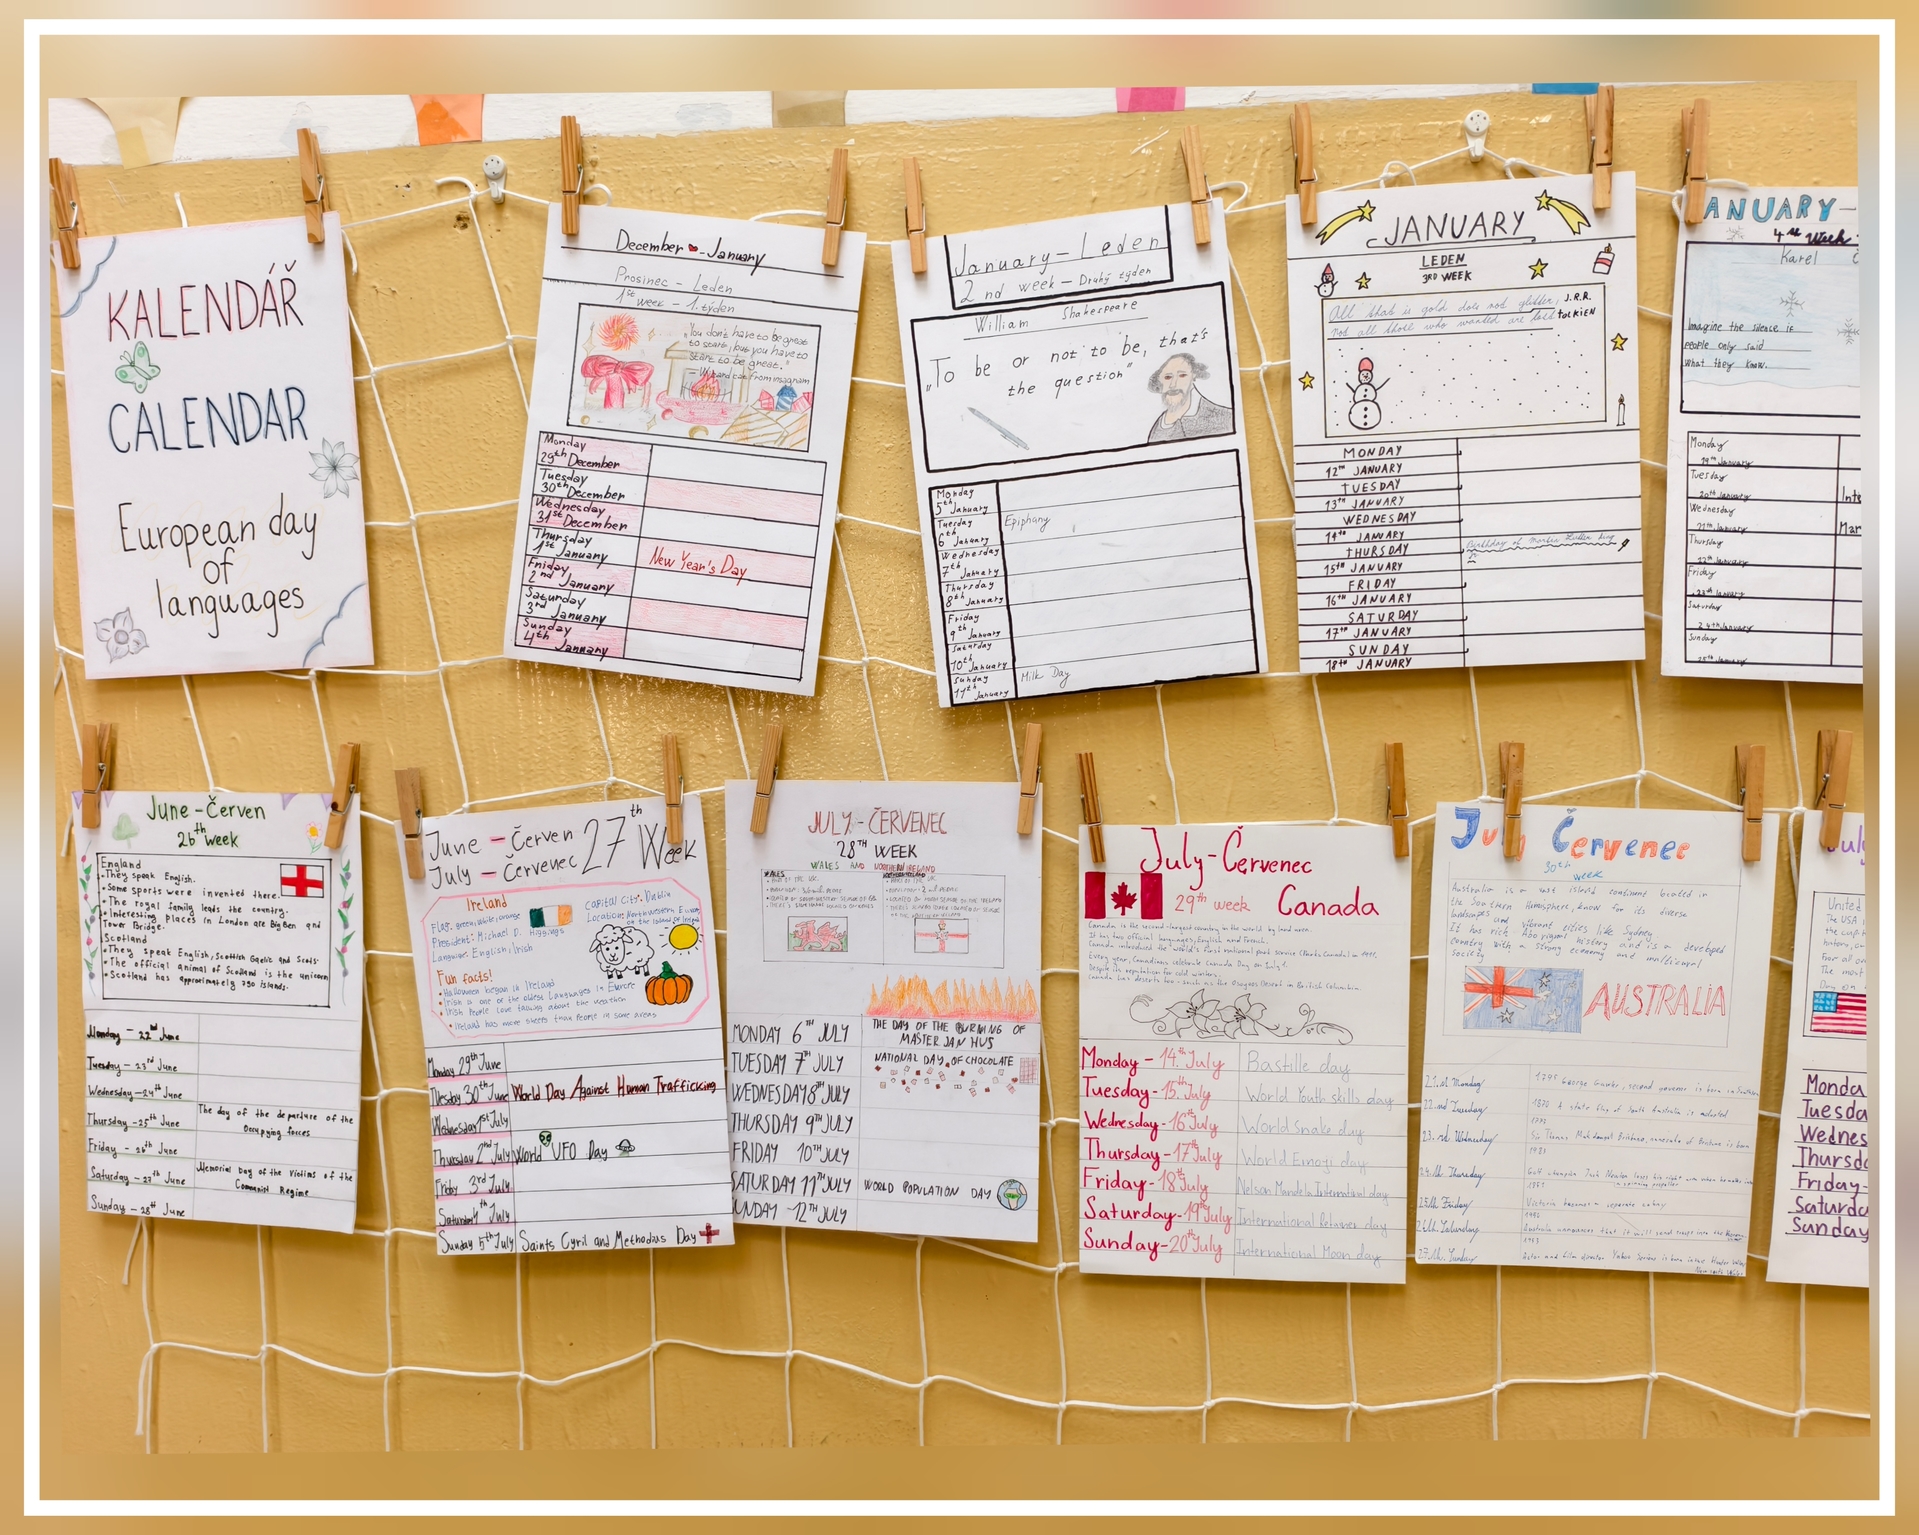 KALENDÁŘ
CALENDAR
European day
of
languages
December - January
Prosinec - Leden
1st week - 1. týden
"You don't have to be great
to start, but you have to
start to be great."
Monday
29th December
Tuesday
30th December
Wednesday
31st December
Thursday
1st January
New Year's Day
Friday
2nd January
Saturday
3rd January
Sunday
4th January
January - Leden
2nd week - Druhý týden
William Shakespeare
"To be or not to be, that's
the question"
Monday
5th January
Tuesday
6th January
Epiphany
Wednesday
7th January
Thursday
8th January
Friday
9th January
Saturday
10th January
Sunday
11th January
Milk Day
JANUARY
LEDEN
3RD WEEK
All that is gold does not glitter, J.R.R.
not all those who wanted are lost TOLKIEN
MONDAY
12TH JANUARY
TUESDAY
13TH JANUARY
WEDNESDAY
14TH JANUARY
THURSDAY
Birthday of Martin Luther King
15TH JANUARY
FRIDAY
16TH JANUARY
SATURDAY
17TH JANUARY
SUNDAY
18TH JANUARY
ANUARY-
4th Week
Karel Č
Imagine the silence if
people only said
what they know.
Monday
19th January
Tuesday
20th January
Inte
Wednesday
21th January
Mar
Thursday
22th January
Friday
23th January
Saturday
24th January
Sunday
25th January
June - Červen
26th week
England
They speak English.
Some sports were invented there.
The royal family leads the country.
Interesting places in London are Big Ben and
Tower Bridge.
Scotland
They speak English, Scottish Gaelic and Scots
The official animal of Scotland is the unicorn
Scotland has approximately 790 islands.
Monday - 22nd June
Tuesday - 23rd June
Wednesday - 24th June
Thursday - 25th June
The day of the departure of the
Occupying forces
Friday - 26th June
Saturday - 27th June
Memorial Day of the Victims of the
Communist Regime
Sunday - 28th June
June - Červen
July - Červenec
27th Week
Ireland
Flag: green, white, orange
President: Michael D. Higgings
Language: English, Irish
Capital City: Dublin
Location: Northwestern Europe
on the island of Ireland
Fun facts!
Halloween began in Ireland
Irish is one of the oldest languages in Europe
Irish people love talking about the weather
Ireland has more sheeps than people in some areas
Monday 29th June
Tuesday 30th June World Day Against Human Trafficking
Wednesday 1st July
Thursday 2nd July World UFO Day
Friday 3rd July
Saturday 4th July
Sunday 5th July Saints Cyril and Methodius Day
JULY - ČERVENEC
28TH WEEK
WALES AND NORTHERN IRELAND
MONDAY 6TH JULY
THE DAY OF THE BURNING OF
MASTER JAN HUS
TUESDAY 7TH JULY
NATIONAL DAY OF CHOCOLATE
WEDNESDAY 8TH JULY
THURSDAY 9TH JULY
FRIDAY 10TH JULY
SATURDAY 11TH JULY WORLD POPULATION DAY
SUNDAY - 12TH JULY
July - Červenec
29th week Canada
Canada is the second-largest country in the world by land area.
It has two official languages, English and French.
Every year, Canadians celebrate Canada Day on July 1.
Despite its reputation for cold winters,
Monday - 14th July Bastille day
Tuesday - 15th July World Youth skills day
Wednesday - 16th July World Snake day
Thursday - 17th July World Emoji day
Friday - 18th July Nelson Mandela International day
Saturday - 19th July International Retainer day
Sunday - 20th July International Moon day
July Červenec
30th week
Australia is a vast island continent located in
the Southern Hemisphere, know for its diverse
landscapes and vibrant cities like Sydney
It has rich Aboriginal history and is a developed
country with a strong economy and multicural
society
AUSTRALIA
21.st Monday
22.nd Tuesday
23.rd Wednesday
24.th Thursday
25.th Friday
26.th Saturday
27.th Sunday
July
United
The USA i
the cap
history, or
For all o
The most
Day on
Monda
Tuesda
Wednes
Thursda
Friday-
Saturda
Sunday